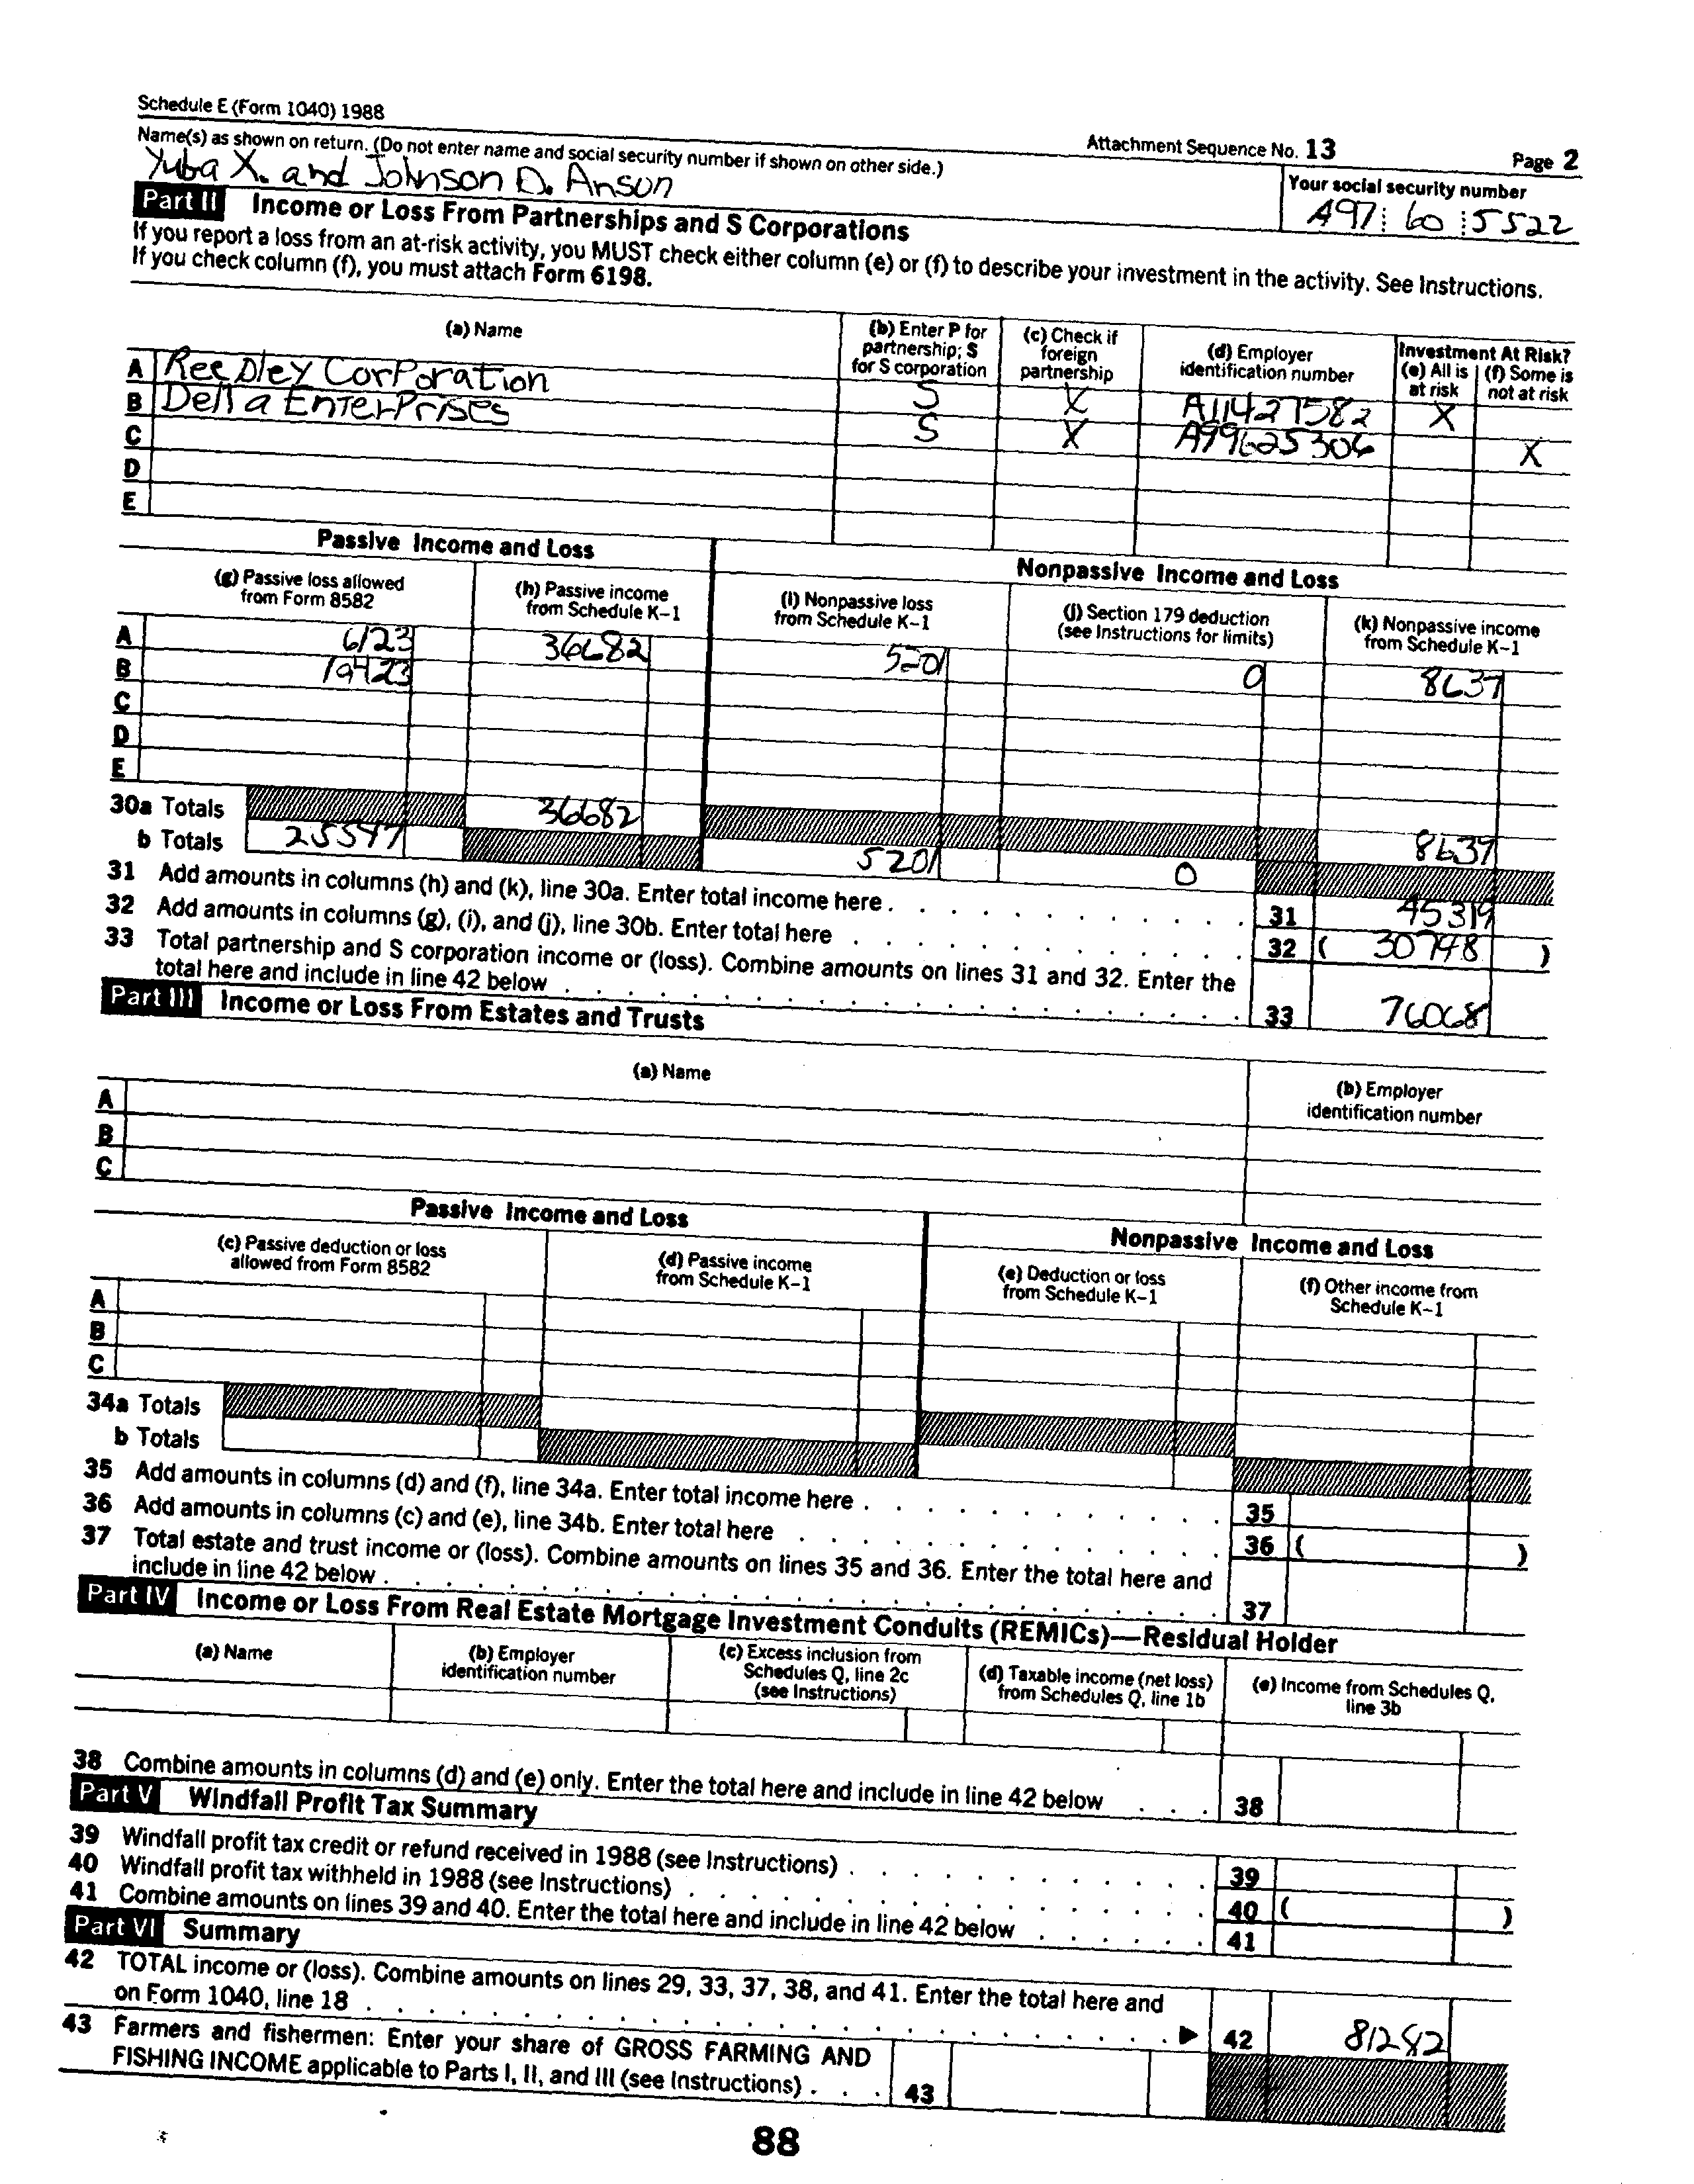 Schedule E (Form 1040) 1988
Attachment Sequence No. 13
Page 2
Name(s) as shown on return. (Do not enter name and social security number if shown on other side.)
Your social security number
Yuba X. and Johnson D. Anson
A97 60 5522
Part II Income or Loss From Partnerships and S Corporations
If you report a loss from an at-risk activity, you MUST check either column (e) or (f) to describe your investment in the activity. See Instructions.
If you check column (f), you must attach Form 6198.
(a) Name
(b) Enter P for partnership; S for S corporation
(c) Check if foreign partnership
(d) Employer identification number
Investment At Risk?
(e) All is at risk
(f) Some is not at risk
A ReeDley CorPoration S X A11427582 X
B Delta EnterPrises S X A99625306 X
C
D
E
Passive Income and Loss
Nonpassive Income and Loss
(g) Passive loss allowed from Form 8582
(h) Passive income from Schedule K–1
(i) Nonpassive loss from Schedule K–1
(j) Section 179 deduction (see Instructions for limits)
(k) Nonpassive income from Schedule K–1
A 6123 36682 5201 0 8637
B 19423
C
D
E
30a Totals 36682 8637
b Totals 25547 5201 0
31 Add amounts in columns (h) and (k), line 30a. Enter total income here 31 45319
32 Add amounts in columns (g), (i), and (j), line 30b. Enter total here 32 ( 30748 )
33 Total partnership and S corporation income or (loss). Combine amounts on lines 31 and 32. Enter the
total here and include in line 42 below 33 76068
Part III Income or Loss From Estates and Trusts
(a) Name
(b) Employer identification number
A
B
C
Passive Income and Loss
Nonpassive Income and Loss
(c) Passive deduction or loss allowed from Form 8582
(d) Passive income from Schedule K–1
(e) Deduction or loss from Schedule K–1
(f) Other income from Schedule K–1
A
B
C
34a Totals
b Totals
35 Add amounts in columns (d) and (f), line 34a. Enter total income here 35
36 Add amounts in columns (c) and (e), line 34b. Enter total here 36 ( )
37 Total estate and trust income or (loss). Combine amounts on lines 35 and 36. Enter the total here and
include in line 42 below 37
Part IV Income or Loss From Real Estate Mortgage Investment Conduits (REMICs)—Residual Holder
(a) Name
(b) Employer identification number
(c) Excess inclusion from Schedules Q, line 2c (see Instructions)
(d) Taxable income (net loss) from Schedules Q, line 1b
(e) Income from Schedules Q, line 3b
38 Combine amounts in columns (d) and (e) only. Enter the total here and include in line 42 below 38
Part V Windfall Profit Tax Summary
39 Windfall profit tax credit or refund received in 1988 (see Instructions) 39
40 Windfall profit tax withheld in 1988 (see Instructions) 40 ( )
41 Combine amounts on lines 39 and 40. Enter the total here and include in line 42 below 41
Part VI Summary
42 TOTAL income or (loss). Combine amounts on lines 29, 33, 37, 38, and 41. Enter the total here and
on Form 1040, line 18 ▶ 42 81282
43 Farmers and fishermen: Enter your share of GROSS FARMING AND
FISHING INCOME applicable to Parts I, II, and III (see Instructions) 43
88